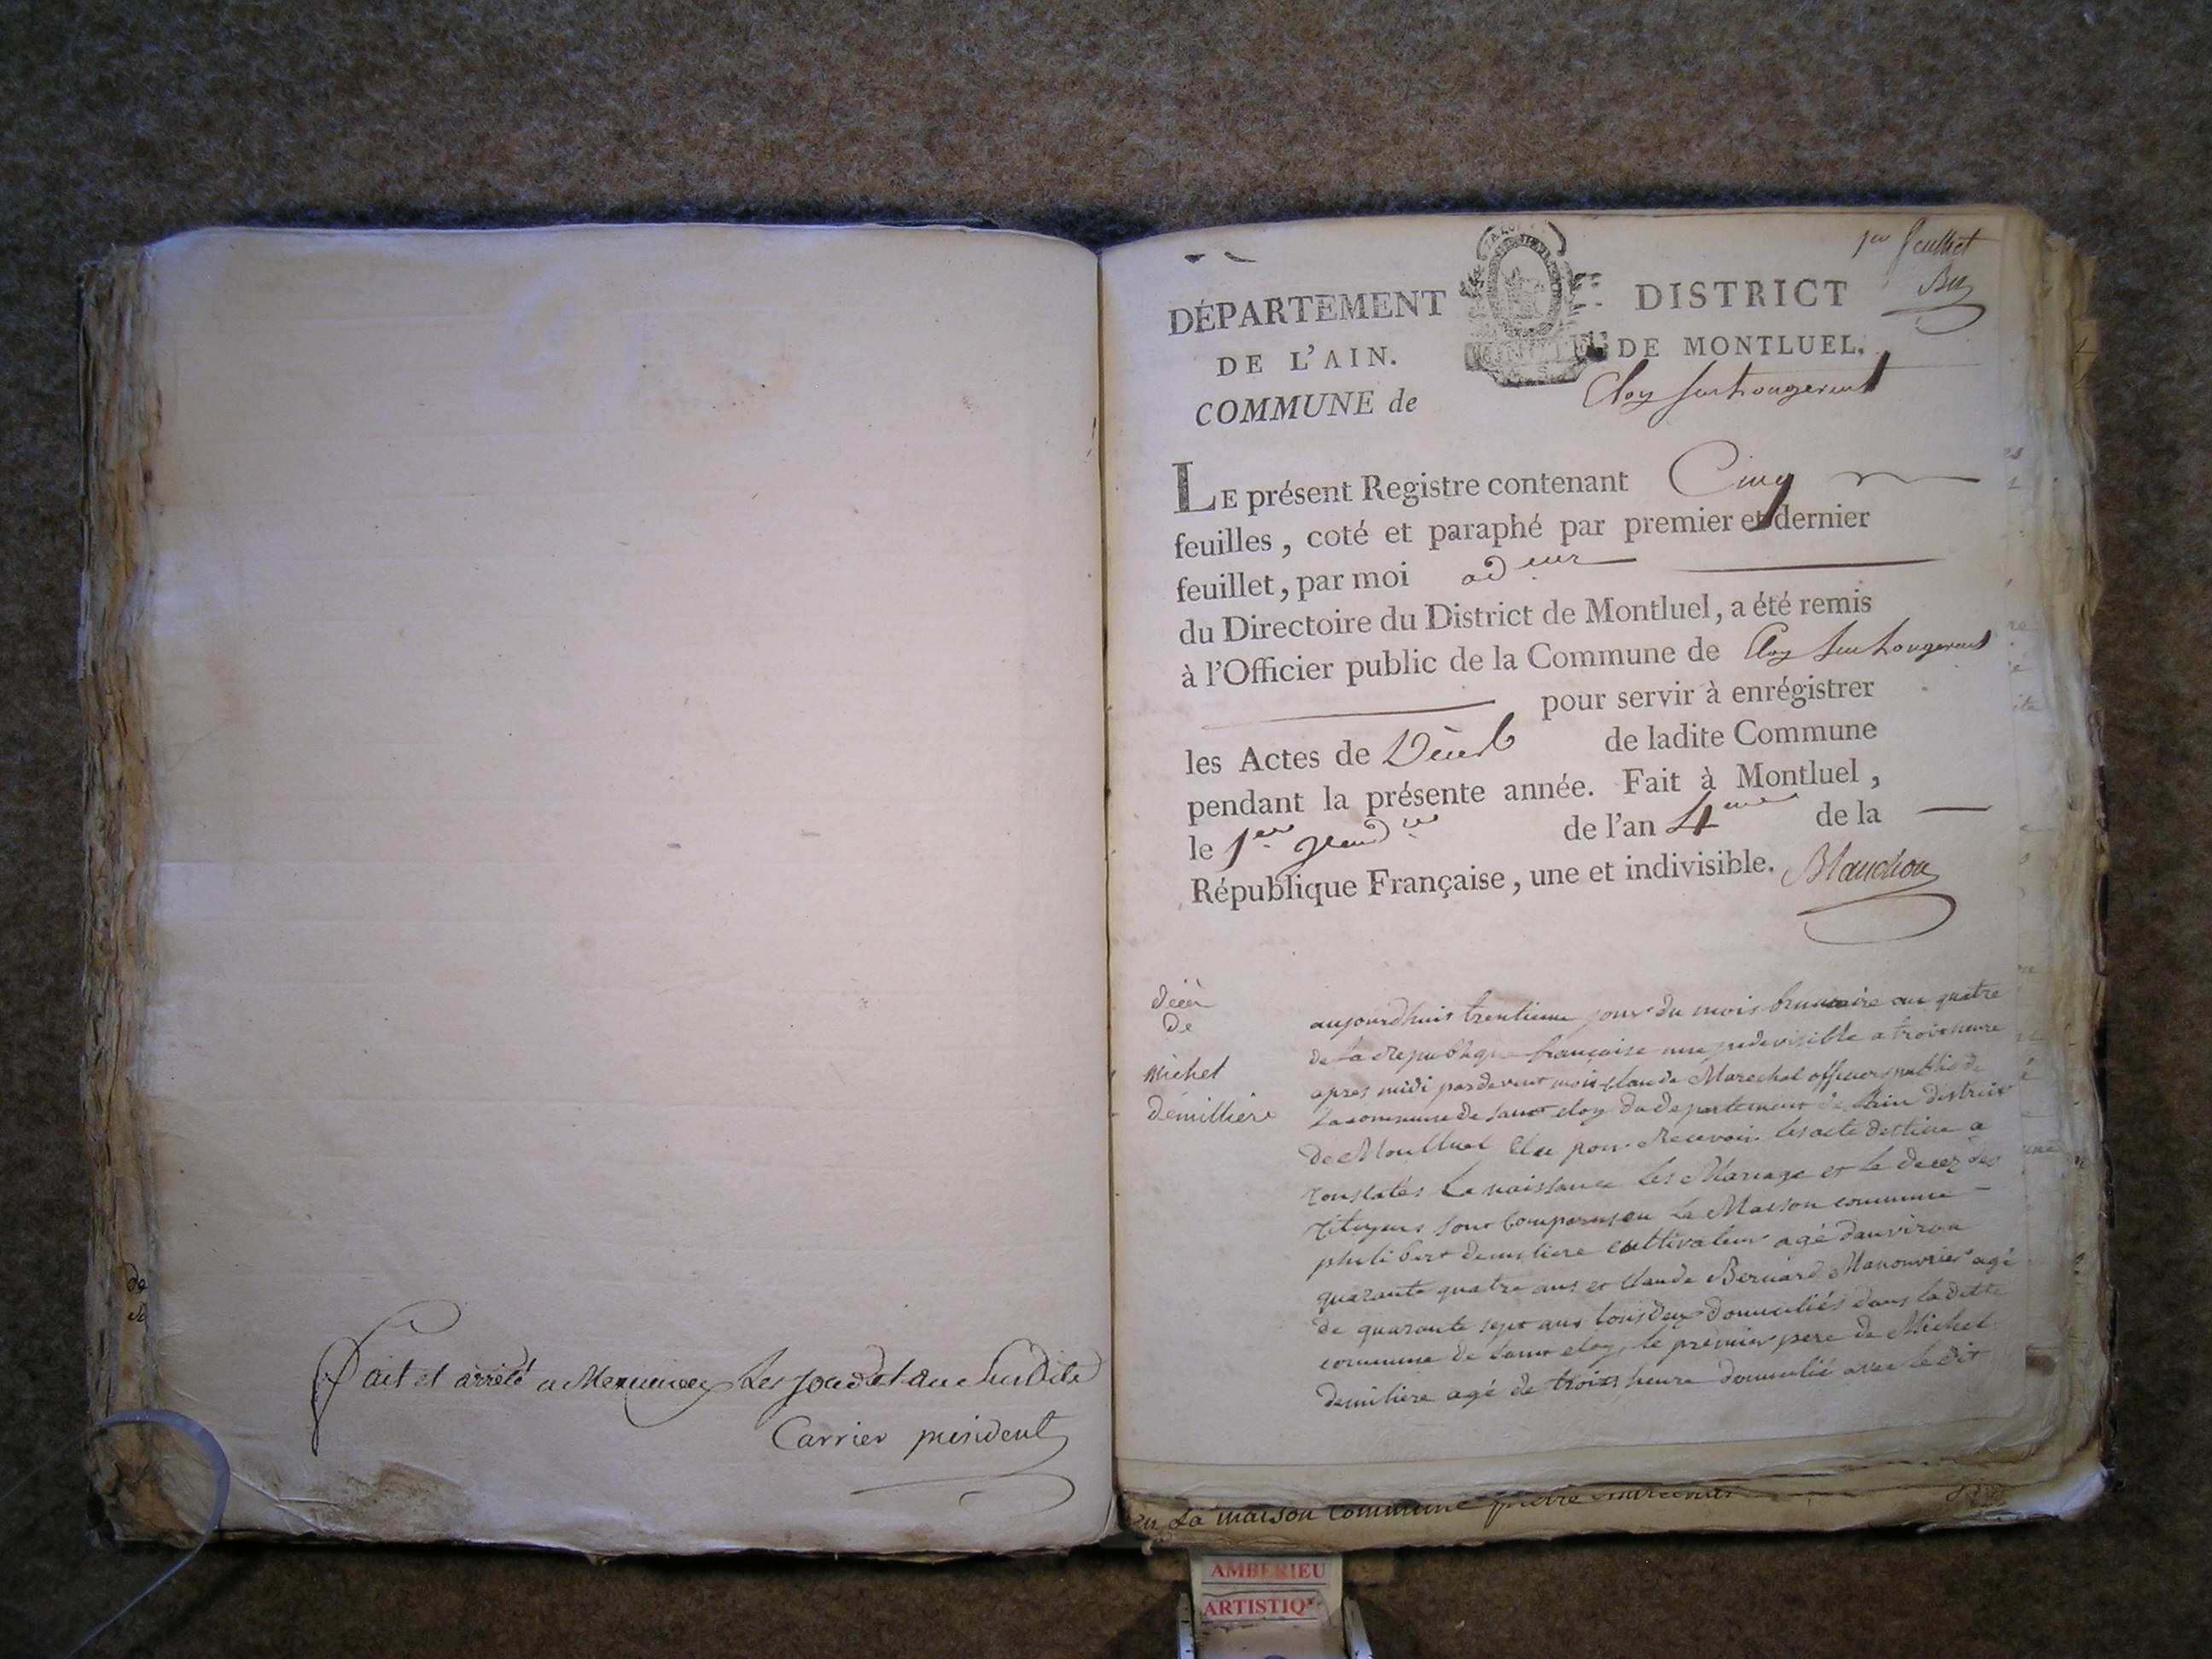 Fait et arrêté a Meximieux Les jour et an susdits
Carrier président
1er feuillet
DÉPARTEMENT
DE L'AIN.
DISTRICT
DE MONTLUEL.
COMMUNE de Eloy
LE présent Registre contenant Cinq
feuilles, coté et paraphé par premier et dernier
feuillet, par moi adeur
du Directoire du District de Montluel, a été remis
à l'Officier public de la Commune de Eloy
pour servir à enrégistrer
les Actes de Décès de ladite Commune
pendant la présente année. Fait à Montluel,
le 1er Vendre de l'an 4me de la
République Française, une et indivisible. Blanchon
décè
de
Michel
démilliere
aujourdhuis trentieme jour du mois brumaire an quatre
de la Republique française une indevisible a trois heure
apres midi pardevent moi Claude Marechal officier public de
la commune de saint eloy du departement de Lain district
de Montluel Elu pour Recevoir les acte destine a
constater la naissance les Mariage et le decez des
Citoyens sont comparus en la Maison commune
philibert demiliere cultivateur agé danviron
quarante quatre ans et Claude Bernard Manouvrier agé
de quarante sept ans tous deux domiciliés dans la ditte
commune de saint eloy, le premier pere de Michel
demiliere agé de trois heure domicilié avec le dit
en La maison Commune pierre
AMBERIEU
ARTISTIQ